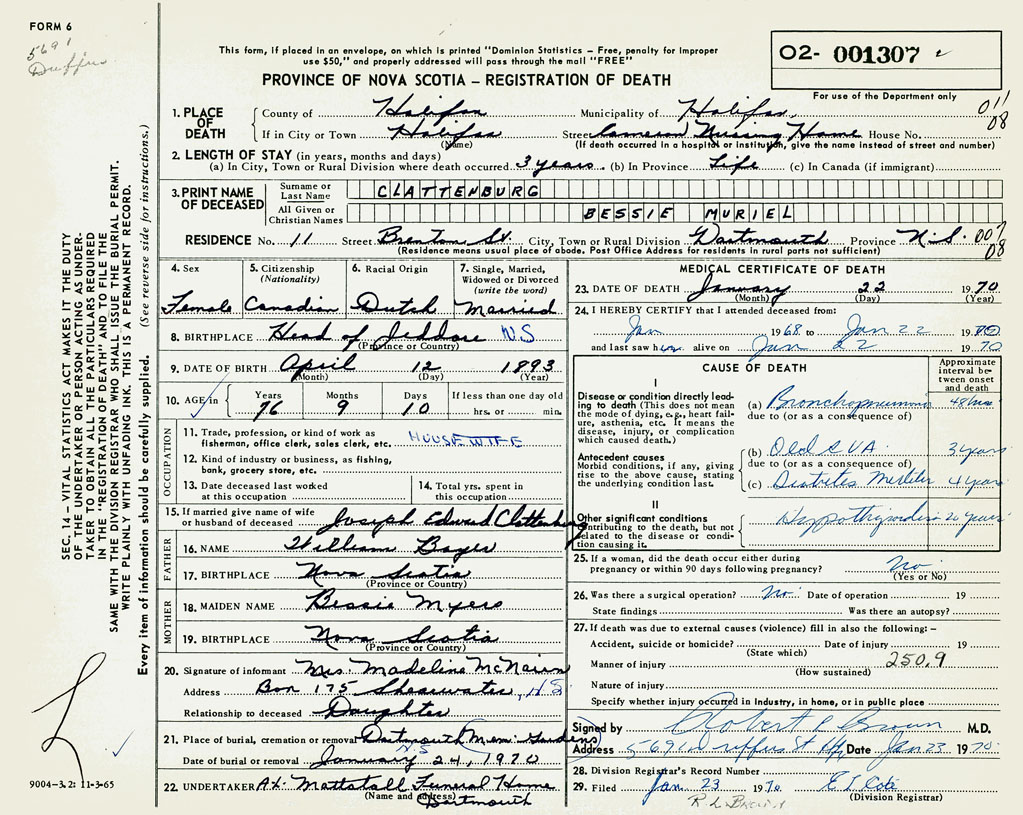 FORM 6
5691
Duffus
This form, if placed in an envelope, on which is printed "Dominion Statistics – Free, penalty for improper
use $50," and properly addressed will pass through the mail "FREE"
PROVINCE OF NOVA SCOTIA – REGISTRATION OF DEATH
02- 001307
For use of the Department only
011
08
1. PLACE OF DEATH
County of Halifax Municipality of Halifax
If in City or Town Halifax Street Cameron Nursing Home House No.
(Name) (If death occurred in a hospital or institution, give the name instead of street and number)
2. LENGTH OF STAY (in years, months and days)
(a) In City, Town or Rural Division where death occurred 3 years (b) In Province Life (c) In Canada (if immigrant)
3. PRINT NAME OF DECEASED
Surname or Last Name CLATTENBURG
All Given or Christian Names BESSIE MURIEL
RESIDENCE No. 11 Street Brenton St. City, Town or Rural Division Dartmouth Province N.S. 007
08
(Residence means usual place of abode. Post Office Address for residents in rural parts not sufficient)
4. Sex
Female
5. Citizenship
(Nationality)
Canadian
6. Racial Origin
Dutch
7. Single, Married,
Widowed or Divorced
(write the word)
Married
8. BIRTHPLACE Head of Jeddore N.S.
(Province or Country)
9. DATE OF BIRTH April 12 1893
(Month) (Day) (Year)
10. AGE in
Years Months Days If less than one day old
76 9 10 hrs. or min.
OCCUPATION
11. Trade, profession, or kind of work as
fisherman, office clerk, sales clerk, etc. HOUSEWIFE
12. Kind of industry or business, as fishing,
bank, grocery store, etc.
13. Date deceased last worked
at this occupation
14. Total yrs. spent in
this occupation
15. If married give name of wife
or husband of deceased Joseph Edward Clattenburg
FATHER
16. NAME William Bayer
17. BIRTHPLACE Nova Scotia
(Province or Country)
MOTHER
18. MAIDEN NAME Bessie Myers
19. BIRTHPLACE Nova Scotia
(Province or Country)
20. Signature of informant Mrs. Madeline McNairn
Address Box 175 Shearwater, N.S.
Relationship to deceased Daughter
21. Place of burial, cremation or removal Dartmouth Mem. Gardens
N.S.
Date of burial or removal January 24, 1970
22. UNDERTAKER A.L. Mattatall Funeral Home
(Name and address) Dartmouth
MEDICAL CERTIFICATE OF DEATH
23. DATE OF DEATH January 22 1970
(Month) (Day) (Year)
24. I HEREBY CERTIFY that I attended deceased from:
Jan 1968 to Jan 22 1970
and last saw her alive on Jan 22 1970
CAUSE OF DEATH
Approximate
interval be-
tween onset
and death
I
Disease or condition directly lead-
ing to death (This does not mean
the mode of dying, e.g., heart fail-
ure, asthenia, etc. It means the
disease, injury, or complication
which caused death.)
(a) Bronchopneumonia 48 hrs
due to (or as a consequence of)
Antecedent causes
Morbid conditions, if any, giving
rise to the above cause, stating
the underlying condition last.
(b) Old CVA 3 years
due to (or as a consequence of)
(c) Diabetes Mellitus 4 years
II
Other significant conditions
contributing to the death, but not
related to the disease or condi-
tion causing it.
Hypothyroidism 20 years
25. If a woman, did the death occur either during
pregnancy or within 90 days following pregnancy? No
(Yes or No)
26. Was there a surgical operation? No Date of operation 19
State findings Was there an autopsy?
27. If death was due to external causes (violence) fill in also the following: –
Accident, suicide or homicide? Date of injury 19
(State which)
Manner of injury 250.9
(How sustained)
Nature of injury
Specify whether injury occurred in industry, in home, or in public place
Signed by Robert L Brown M.D.
Address 5691 Duffus St Hfx Date Jan 23 1970
28. Division Registrar's Record Number
29. Filed Jan. 23 1970
(Division Registrar)
R. L. BROWN
SEC. 14 – VITAL STATISTICS ACT MAKES IT THE DUTY
OF THE UNDERTAKER OR PERSON ACTING AS UNDER-
TAKER TO OBTAIN ALL THE PARTICULARS REQUIRED
IN THE "REGISTRATION OF DEATH" AND TO FILE THE
SAME WITH THE DIVISION REGISTRAR WHO SHALL ISSUE THE BURIAL PERMIT.
WRITE PLAINLY WITH UNFADING INK. THIS IS A PERMANENT RECORD.
Every item of information should be carefully supplied. (See reverse side for instructions.)
9004-3.2: 11-3-65